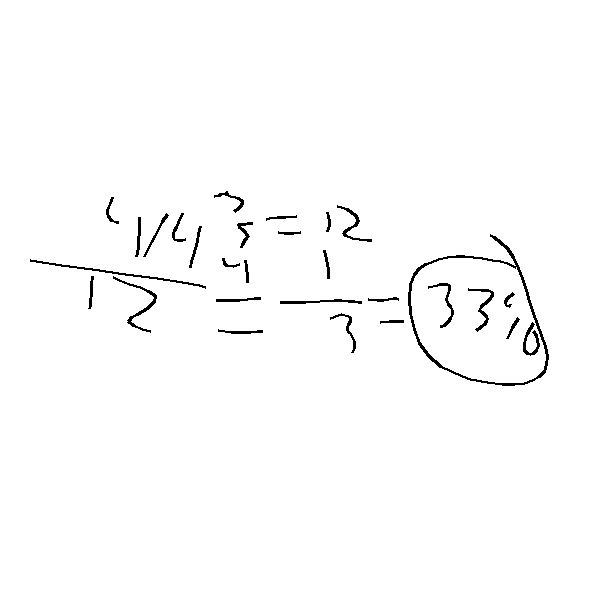 4/4 3 = 12
12 = 1/3 = 33%